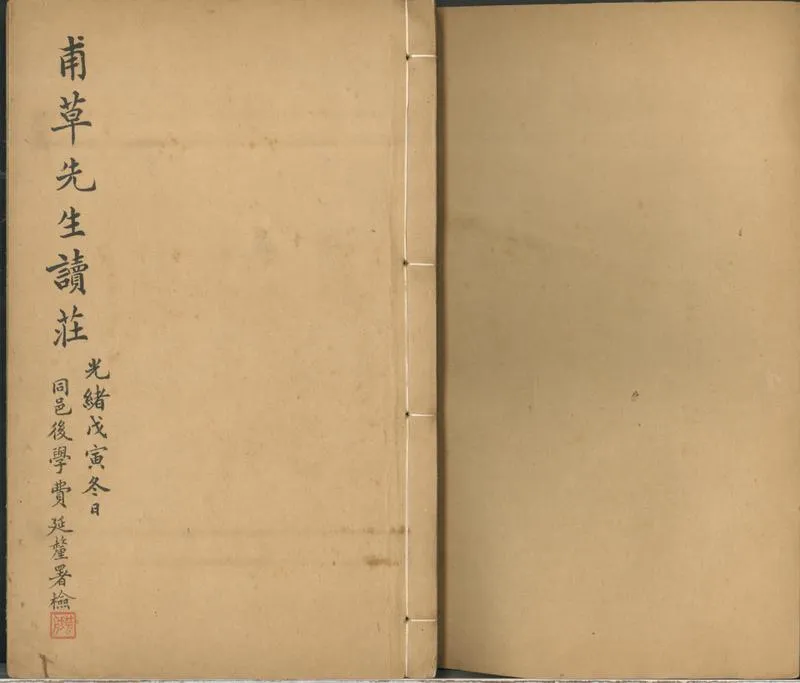 甫草先生讀莊
光緒戊寅冬日
同邑後學費延釐署檢